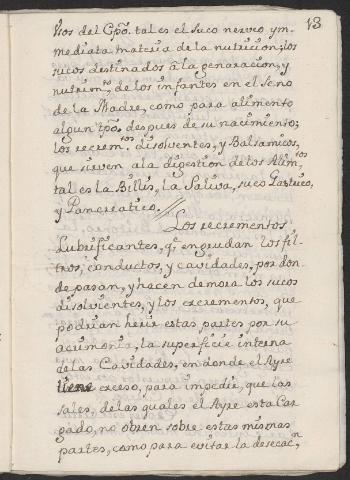 13
Vsos del Cpõ. tal es el suco nerveo ym-
mediata materia de la nutricion; los
sucos destinados â la genaracion, y
nutrimto. de los infantes en el seno
de la Madre, como para alimento
algun tpõ. despues de su nacimiento;
los recremtos. disolventes, y Balsamicos,
que sirven ala digestion de los Alimtos.
tal es la Billis, la Saliva, suco Gastrico,
y Pancreatico. //
Los recrementos
Lubrificantes, q.e engrudan los fil-
tros, conductos, y cavidades, por don-
de pasan, y hacen demora los sucos
disolvientes, y los excrementos, que
podrian herir estas partes por su
acrimonia, la superficie interna
de las Cavidades, en donde el Ayre
tiene exceso, para impedir, que las
sales, de las quales el Ayre esta Car
gado, no obren sobre estas mismas
partes, como para evitar la desecacn.